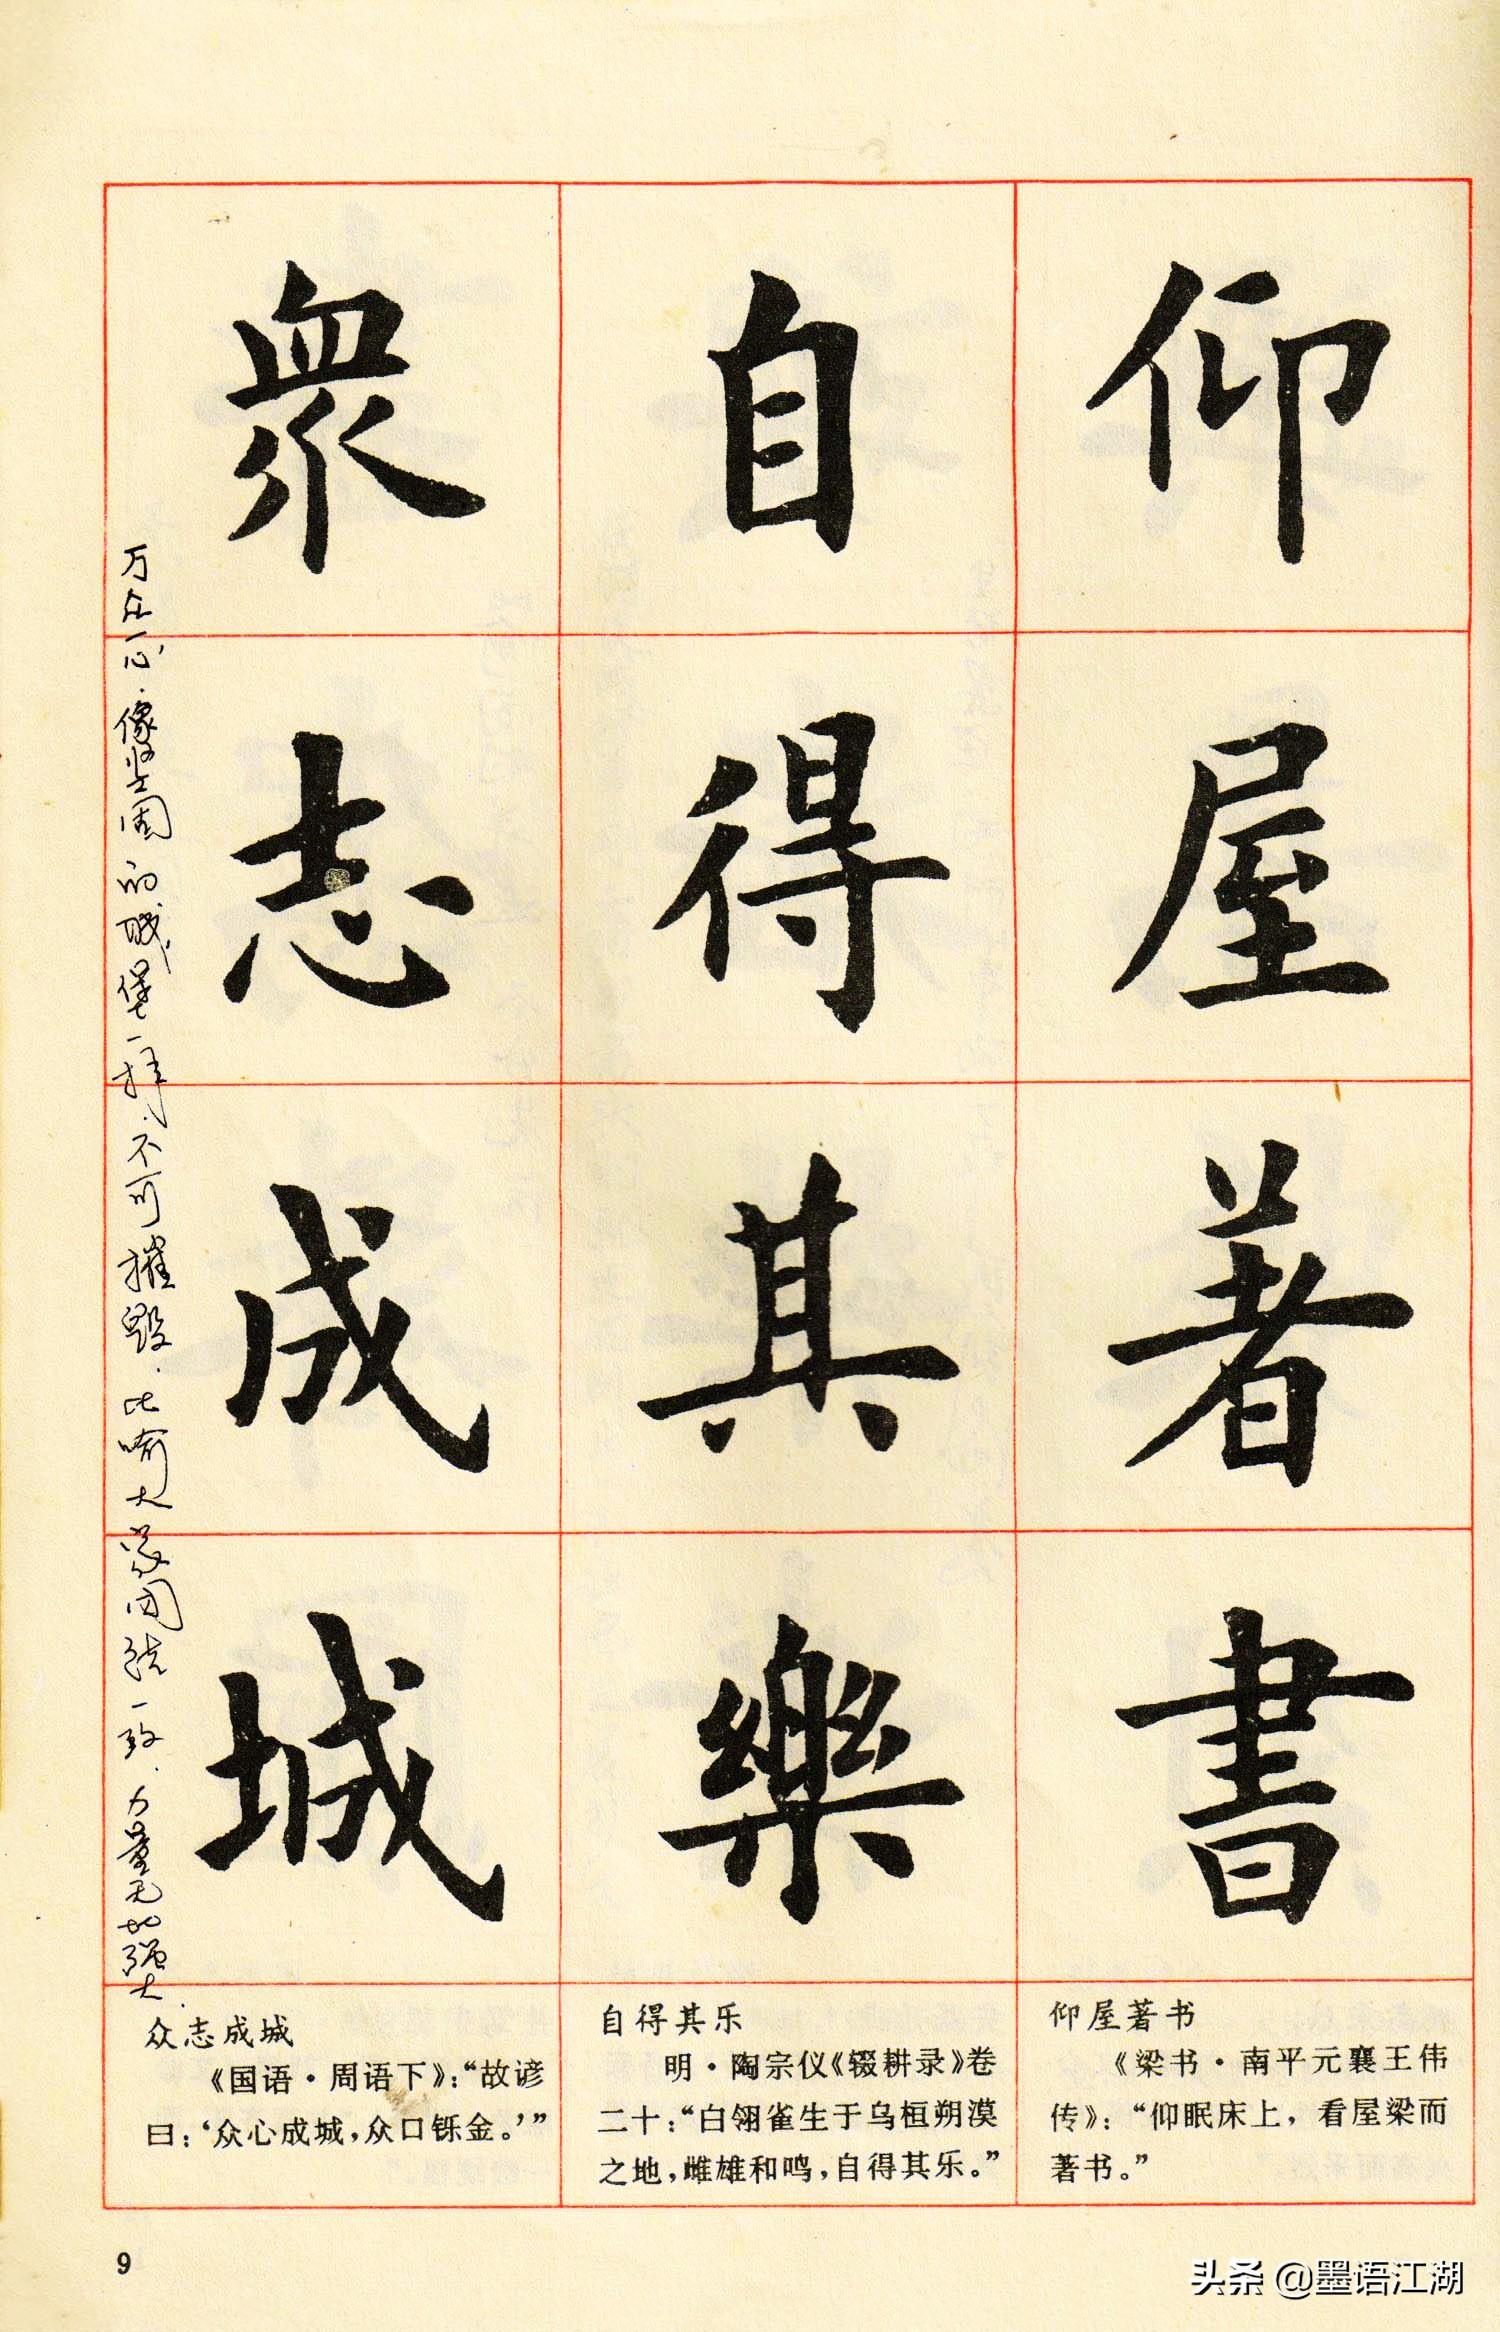 仰屋著書
自得其樂
眾志成城
万众一心.像坚固的城堡一样,不可摧毁.比喻大家团结一致.力量无比强大.
仰屋著书
《梁书·南平元襄王伟
传》：“仰眠床上，看屋梁而
著书。”
自得其乐
明·陶宗仪《辍耕录》卷
二十：“白翎雀生于乌桓朔漠
之地，雌雄和鸣，自得其乐。”
众志成城
《国语·周语下》：“故谚
曰：‘众心成城，众口铄金。’”
9
头条 @墨语江湖